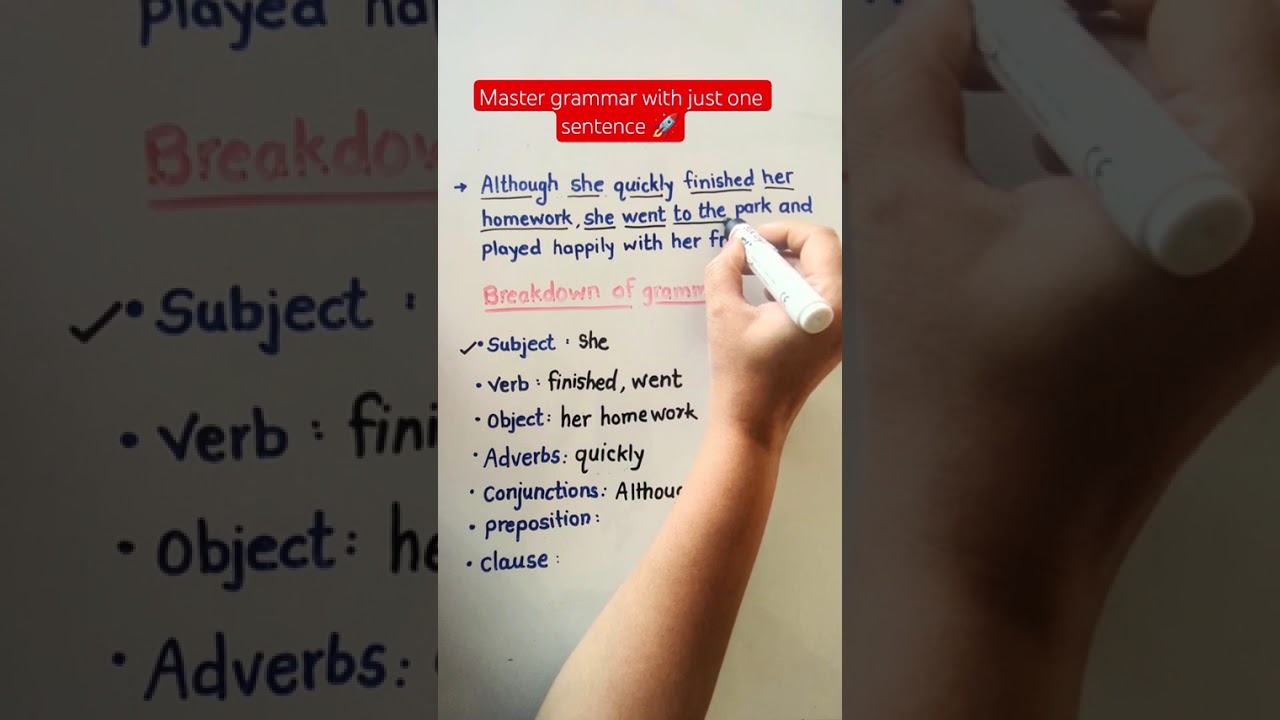 Master grammar with just one
sentence 🚀
→ Although she quickly finished her
homework, she went to the park and
played happily with her
Breakdown of
• Subject : She
• Verb : finished, went
• Object : her homework
• Adverbs : quickly
• Conjunctions :
• preposition :
• Clause :
played
• Subject :
• Verb :
• Object :
• Adverbs :